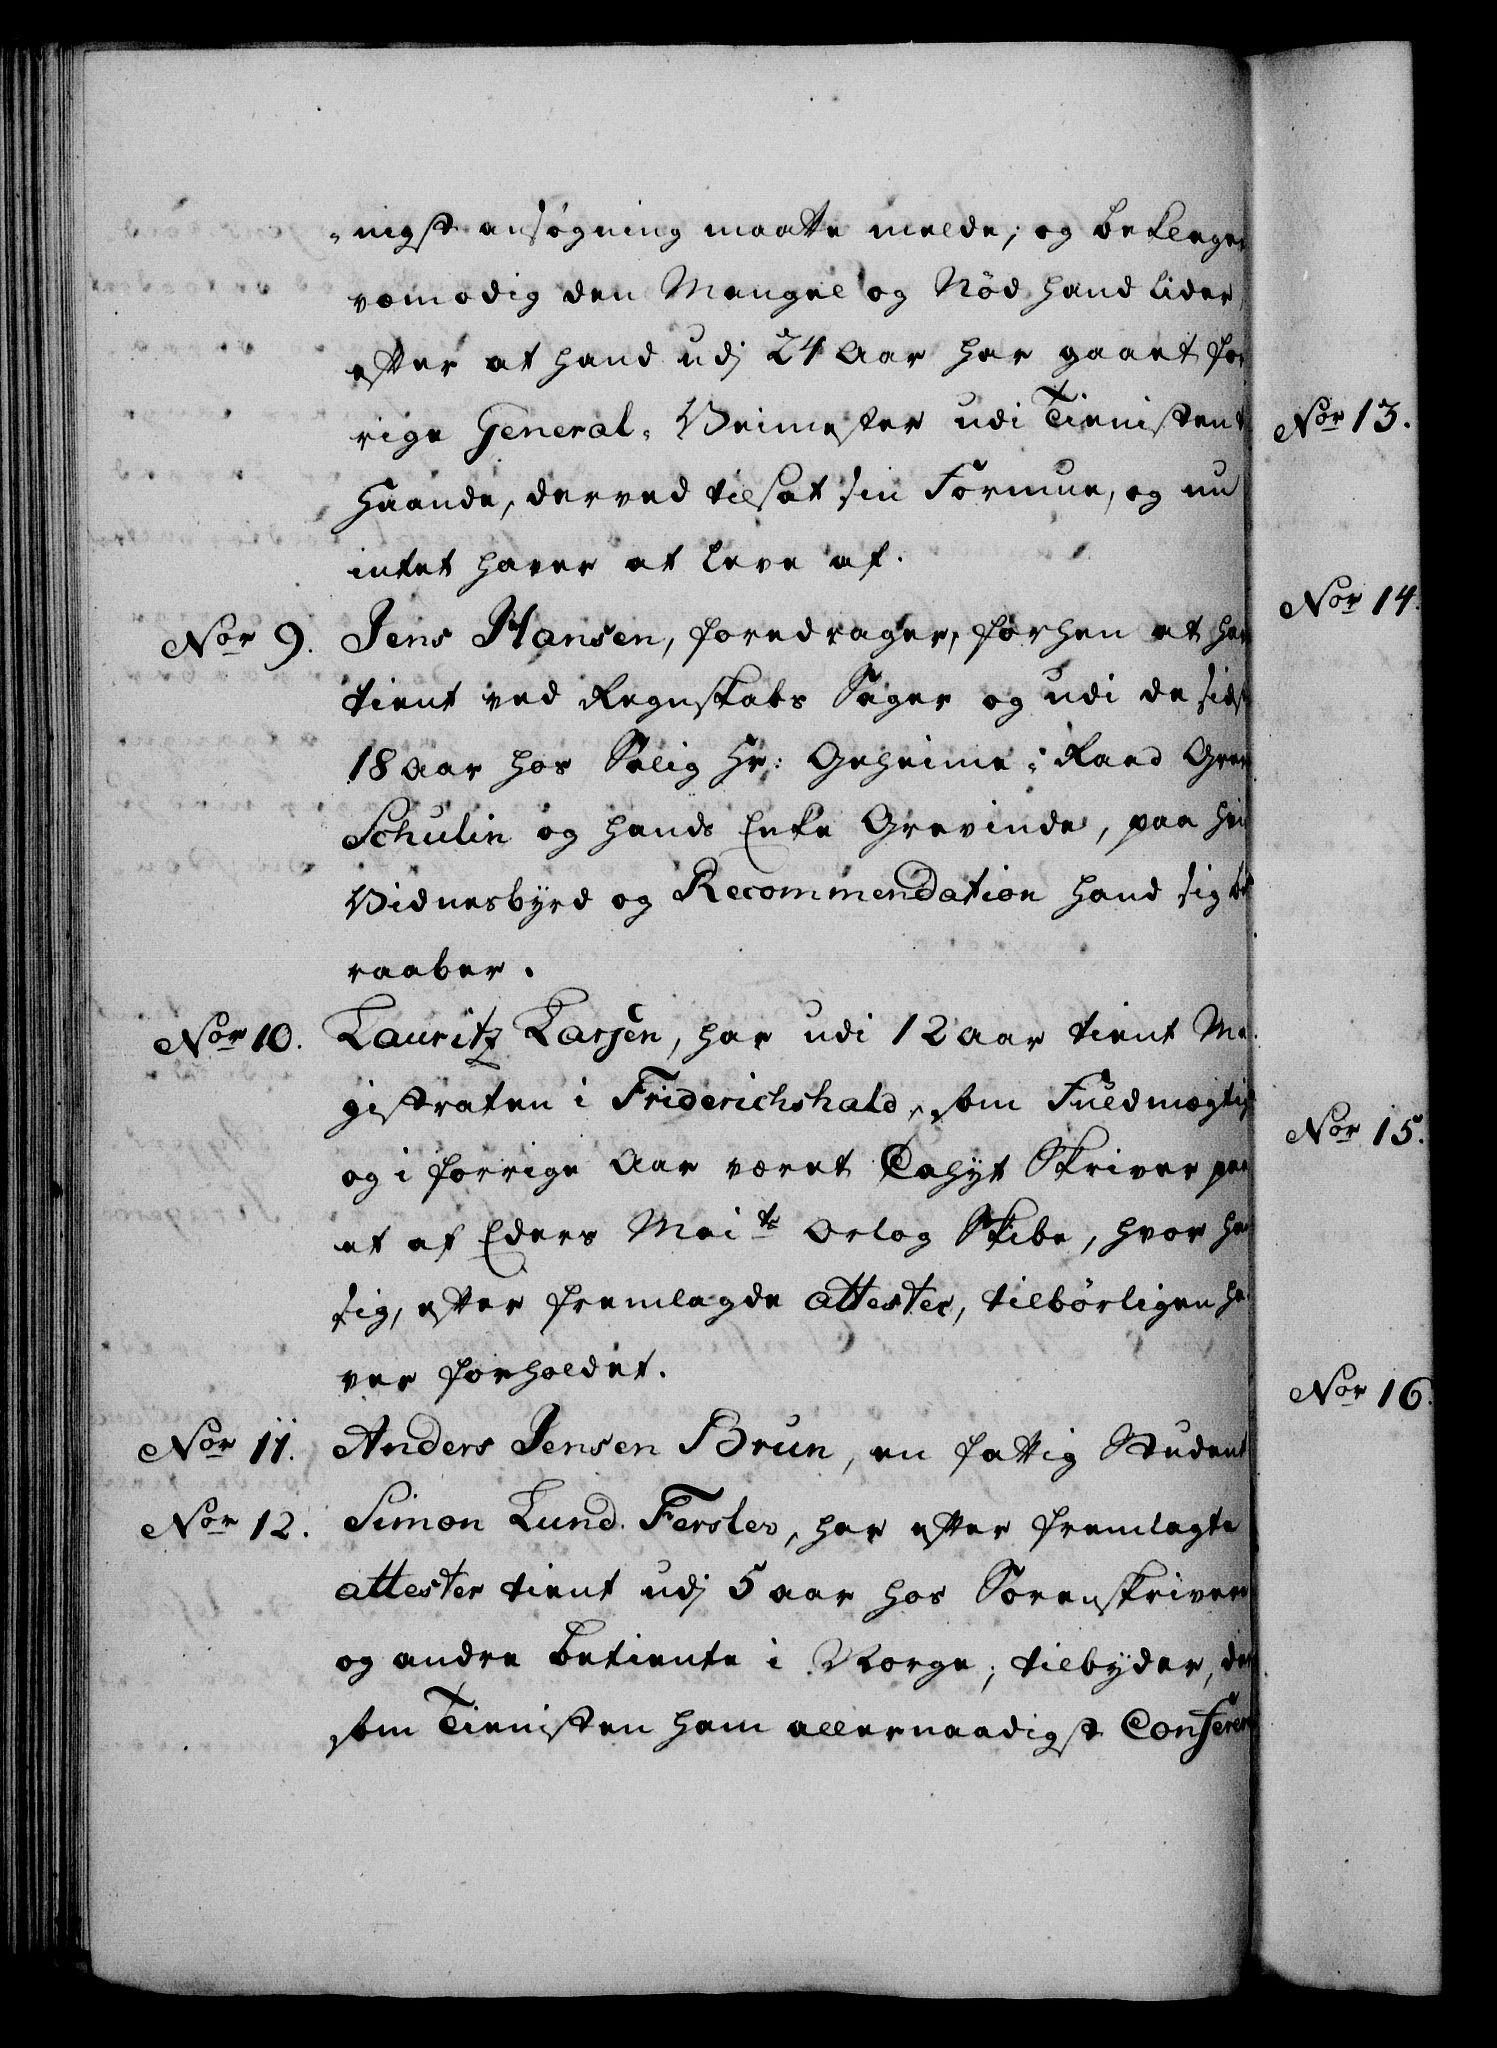 nigst ansøgning maatte melde, og beklager
vemodig den Mangel og Nød hand lider,
efter at hand udj 24 Aar har gaaet for
rige General-Veimester udi Tienisten t
Haande, derved tilsat sin Formue, og nu
intet haver at leve af.
Nor 9. Jens Hansen, foredrager, forhen at have
tient ved Regnskabs Sager og udi de sidst
18 Aar hos Salig Hr: Geheime-Raad Grev
Schulin og hands Enke Grevinde, paa hvis
Vidnesbyrd og Recommendation hand sig be
raaber.
Nor 10. Lauritz Larsen, har udi 12 Aar tient Ma
gistraten i Friderichshald, som Fuldmægtig
og i forrige Aar været Cahyt Skriver paa
et af Eders Mai.ts Orlog Skibe, hvor hand
sig, efter fremlagde attester, tilbørligen ha
ver forholdet.
Nor 11. Anders Jensen Brun, en fattig Student
Nor 12. Simon Lund Fersler, har efter fremlagte
attester tient udj 5 aar hos Sorenskrivere
og andre Betiente i Norge; tilbyder, der
som Tienisten ham allernaadigst Conferer
Nor 13.
Nor 14.
Nor 15.
Nor 16.